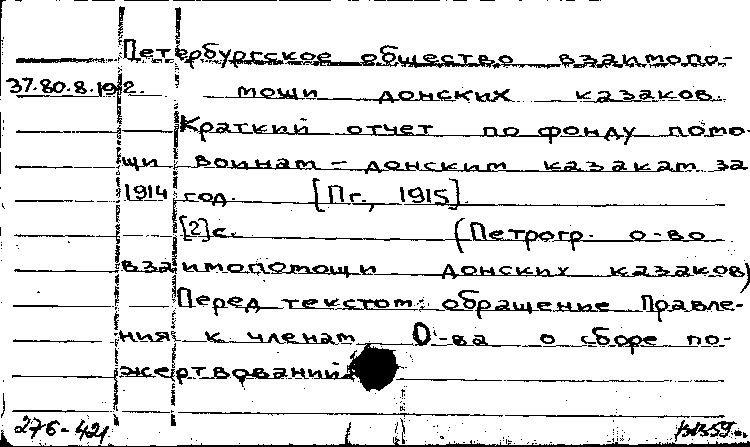 Петербургское общество взаимопо-
37.80.8.192. мощи донских казаков.
Краткий отчет по фонду помо-
щи воинам - донским казакам за
1914 год. [Пг., 1915].
[2]с. (Петрогр. о-во
взаимопомощи донских казаков)
Перед текстом: обращение Правле-
ния к членам О-ва о сборе по-
жертвований.
276-421